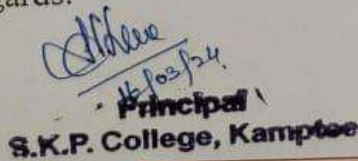 gards.
16/03/24.
Principal
S.K.P. College, Kamptee